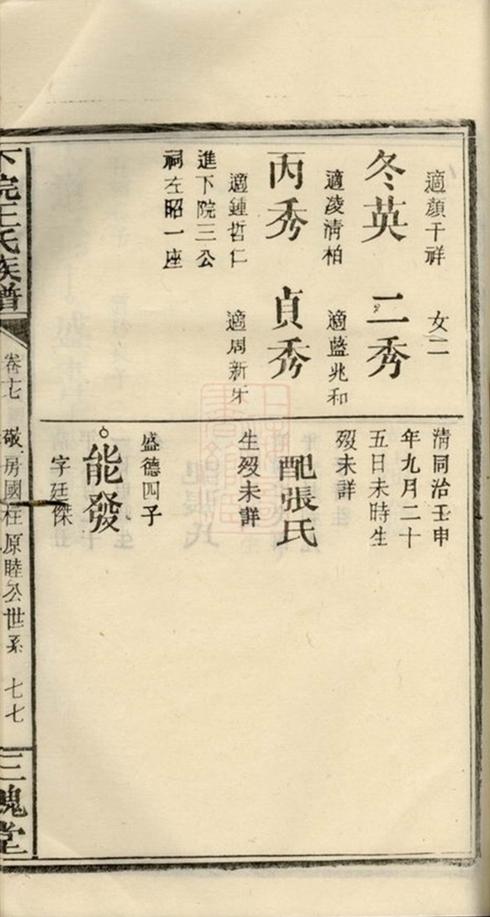 適顏于祥
女二
冬英 二秀
適凌清柏 適藍兆和
丙秀 貞秀
適鍾哲仁 適周新牙
進下院三公
祠左昭一座
清同治壬申
年九月二十
五日未時生
歿未詳
配張氏
生歿未詳
盛德四子
能發
字廷傑
下院王氏族譜
卷十七 敬房國柱原睦公世系 七七
三槐堂